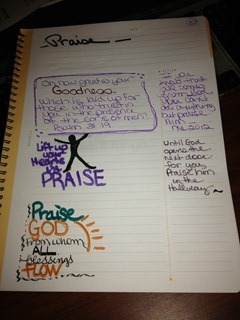 Praise
Oh how great is your
Goodness,
Which is laid up for
those who trust in
you in the presence
of the sons of men!
Psalm 31:19
Lift up
your
Hearts
in
PRAISE
Praise
GOD
from whom
ALL
blessings
FLOW
you
know that
all
comes
from
you can't
do anything
but praise
Him
2012
Until God
opens the
next door
for you,
Praise him
in the
Hallway